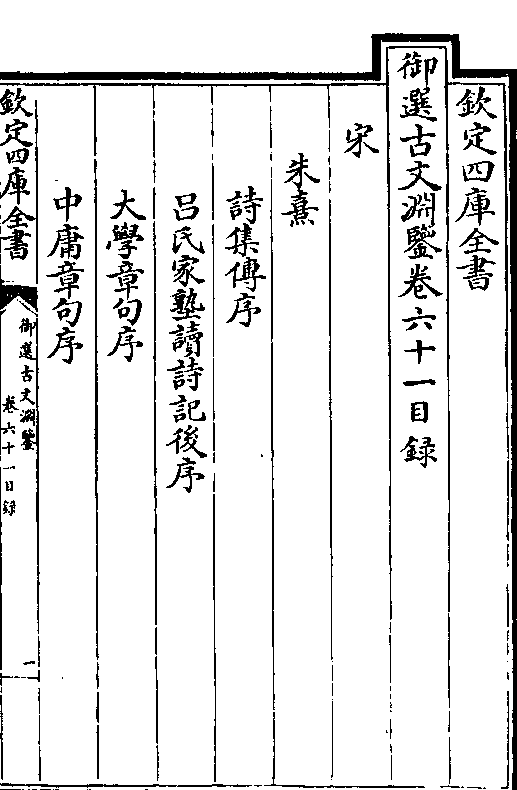 欽定四庫全書
御選古文淵鑒卷六十一目録
宋
朱熹
詩集傳序
吕氏家塾讀詩記後序
大學章句序
中庸章句序
欽定四庫全書
御選古文淵鑒
卷六十一目録
一